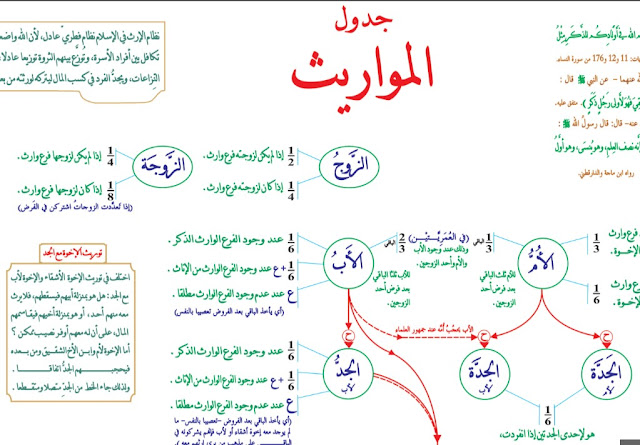 جدول
المواريث
نظام الإرث في الإسلام نظام فطري عادل، لأن الله واضعه
تكافل بين أفراد الأسرة، وتوزع بينهم الثروة توزيعا عادلا،
النزاعات، ويجد الفرد في كسب المال ليتركه لورثته من بعد
الله في أولادكم للذكر مثل
يات: 11 و12 و176 من سورة النساء.
الله عنهما - عن النبي ﷺ قال :
فهو لأولى رجل ذكر). متفق عليه.
عنه - قال: قال رسول الله ﷺ :
فإنه نصف العلم، وهو ينسى، وهو أول
رواه ابن ماجة والدارقطني.
الزوج
1/2 إذا لم يكن لزوجته فرع وارث.
1/4 إذا كان لزوجته فرع وارث.
الزوجة
1/4 إذا لم يكن لزوجها فرع وارث.
1/8 إذا كان لزوجها فرع وارث.
(إذا تعددت الزوجات اشتركن في الفرض)
الأم
فرع وارث
1/3
الإخوة.
وارث
1/6
الإخوة.
1/3 الباقي
للأم ثلث الباقي
بعد فرض أحد
الزوجين.
(في العمريتين)
وذلك عند وجود الأب
والأم وأحد الزوجين.
2/3 الباقي
للأب ثلثا الباقي
بعد فرض أحد
الزوجين.
الأب
1/6 عند وجود الفرع الوارث الذكر.
1/6 + ع عند وجود الفرع الوارث من الإناث.
ع عند عدم وجود الفرع الوارث مطلقا.
(أي يأخذ الباقي بعد الفروض تعصيبا بالنفس)
الأب يحجب أمه عند جمهور العلماء
ح
ح
ح
الجد
لأب
1/6 عند وجود الفرع الوارث الذكر.
1/6 + ع عند وجود الفرع الوارث من الإناث.
ع عند عدم وجود الفرع الوارث مطلقا.
(أي يأخذ الباقي بعد الفروض -تعصيبا بالنفس- ما
لم يوجد معه إخوة أشقاء أو لأب فإنهم يشركونه في
الجدة
لأب
الجدة
لأم
1/6
هو لإحدى الجدتين إذا انفردت،
توريث الإخوة مع الجد
اختلف في توريث الإخوة الأشقاء والإخوة لأب
مع الجد : هل هو بمنزلة أبيهم فيسقطهم، فلا يرث
معه منهم أحد، أو هو بمنزلة أخيهم فيقاسمهم
المال، على أن له معهم أوفر نصيب ممكن ؟
أما الإخوة لأم وابن الأخ الشقيق ومن بعده
فيحجبهم الجد اتفاقا .
ولذلك جاء الخط من الجد متصلا ومتقطعا .